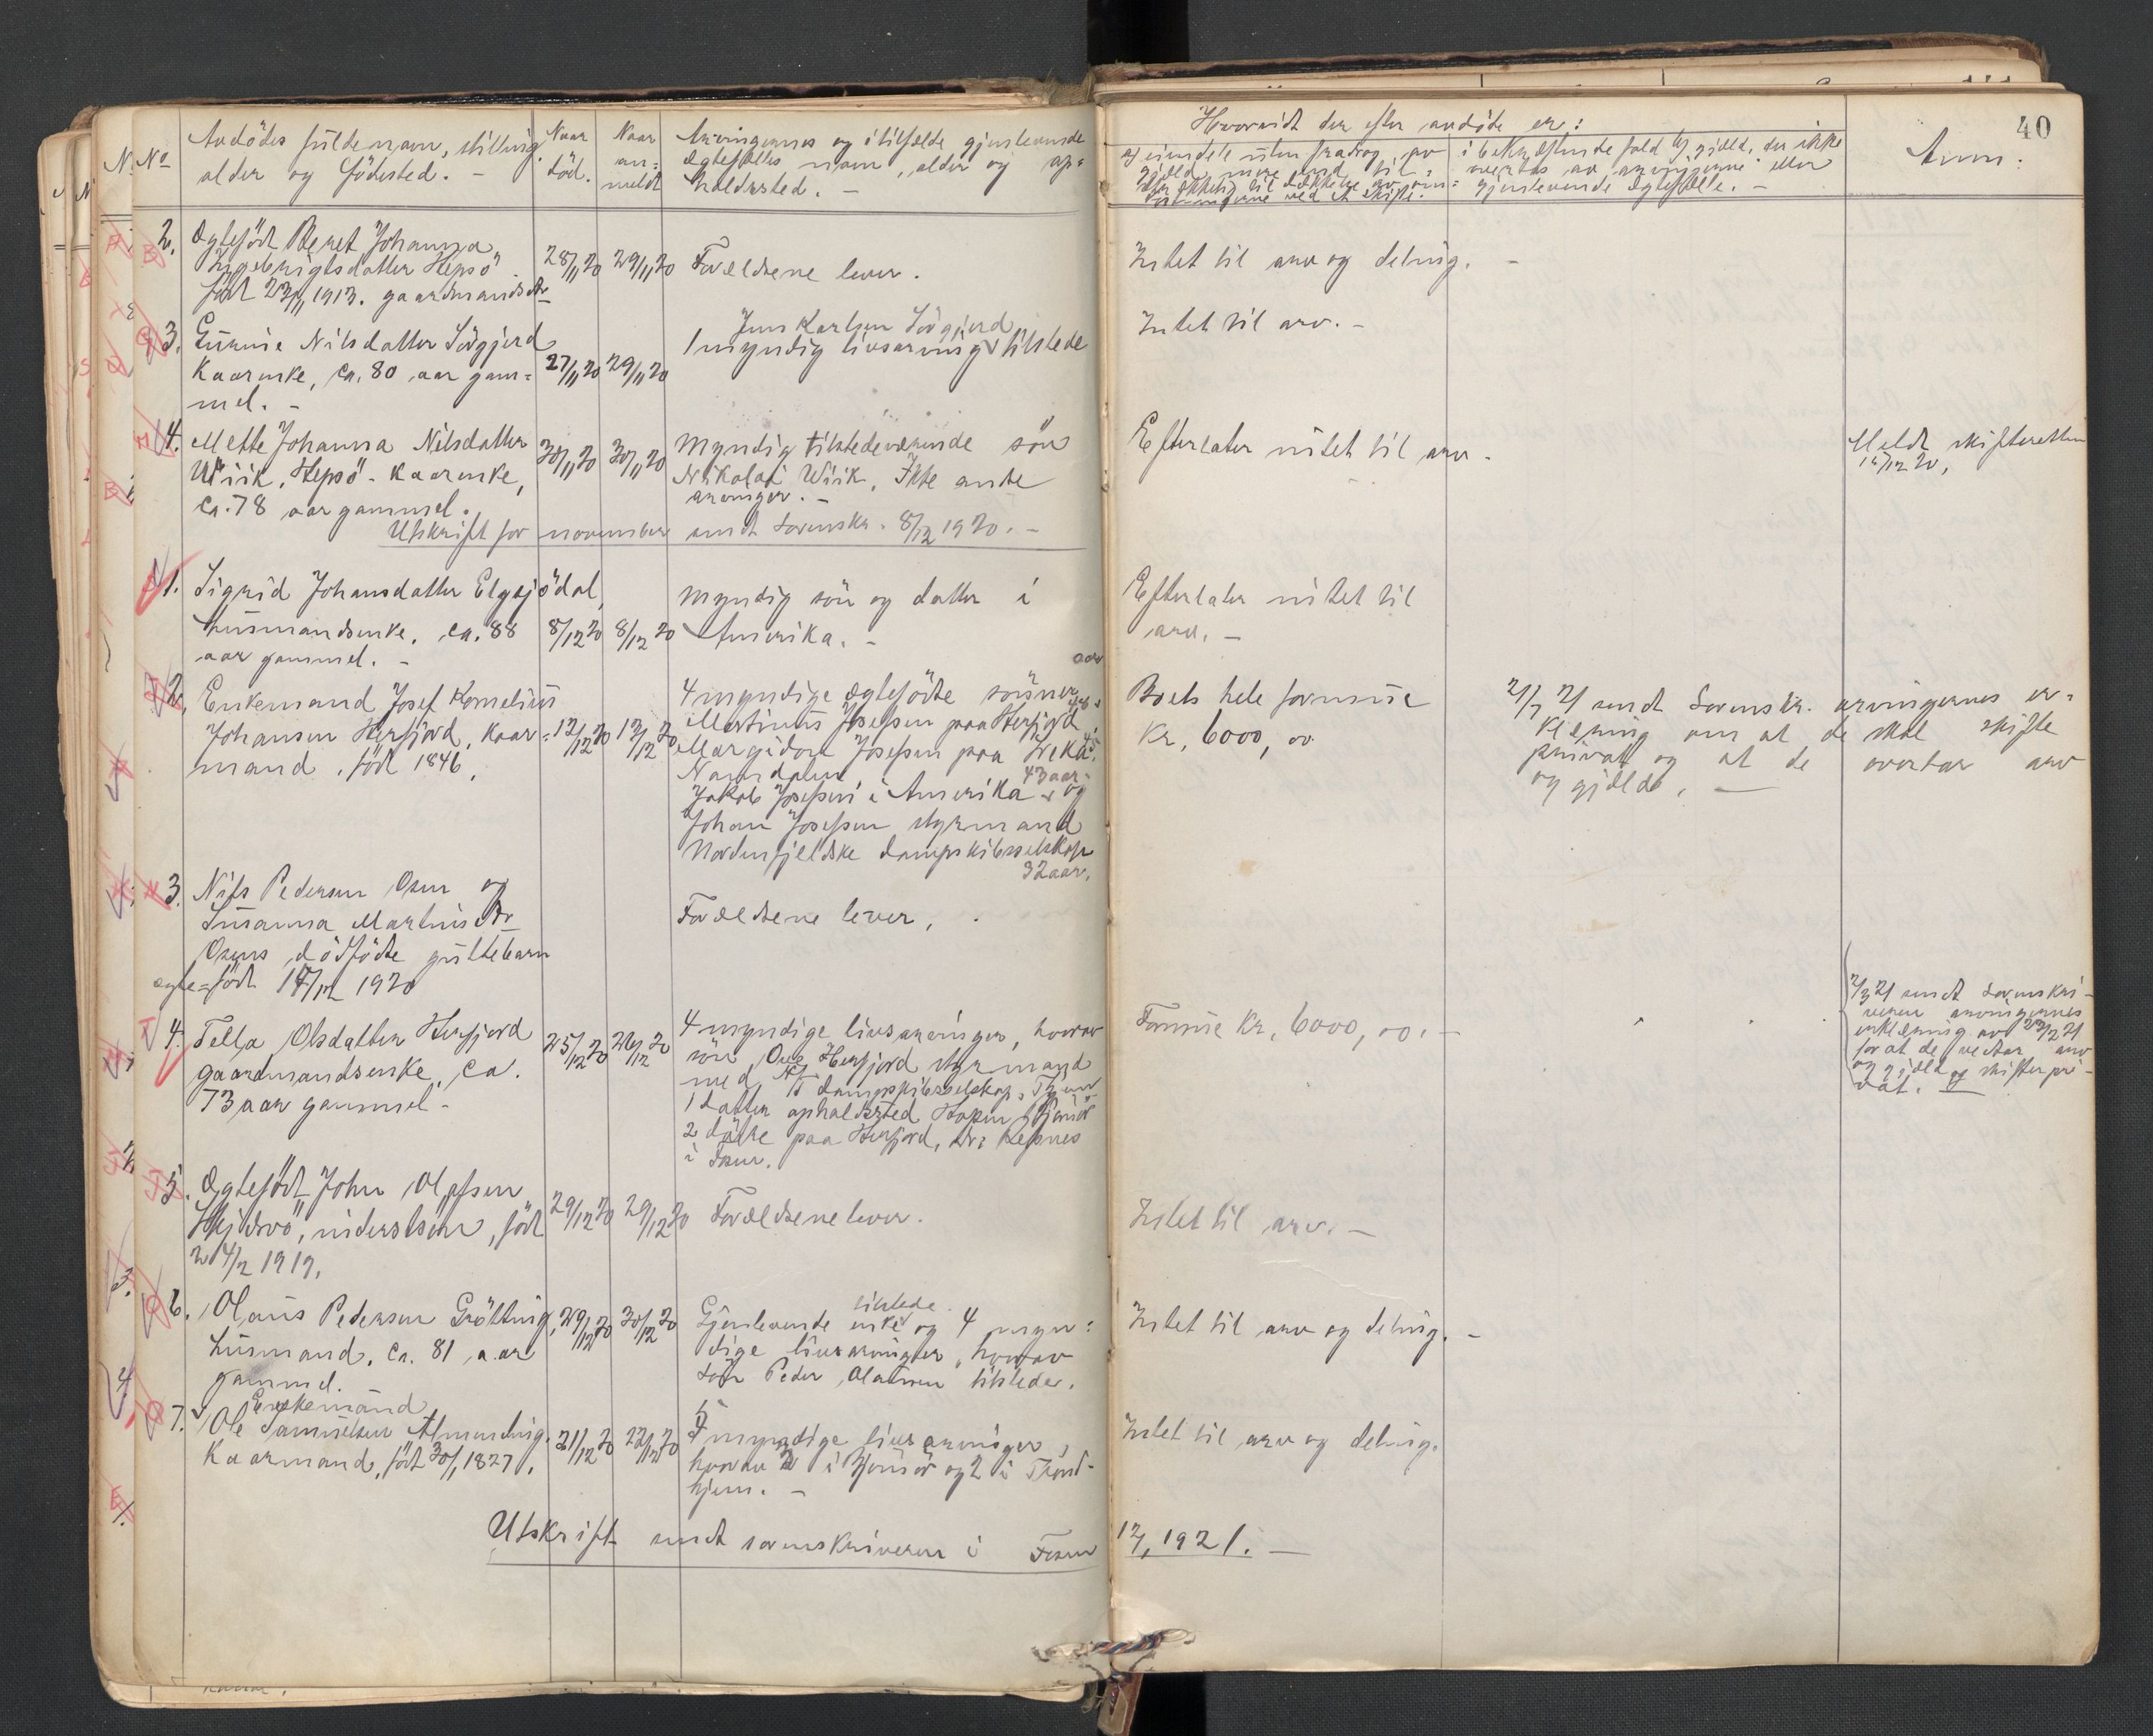 40
No
Avdödes fuldenavn, stilling
alder og födested. -
Naar
död.
Naar
an=
meldt
Arvingernes og i tilfælde gjenlevende
egtefælles navn, alder og op=
holdssted. -
Hvorvidt der efter avdöde er:
a) eiendele uten fradrag av
gjeld mere end til=
strækkelig til dækkelse av om=
kostningerne ved et skifte.
i bekræftende fald b) gjæld, der ikke
overtas av arvingerne eller
gjenlevende egtefælle. -
Anm.
2.
Egtefödt Beret Johanna
Ingebrigtsdatter Hepsö
födt 23/11 1913. gaardmandsdtr
28/11 20
29/11 20
Forældrene lever.
Intet til arv og deling. -
3.
Gurine Nilsdatter Sörgjerd
Kaarenke, ca. 80 aar gam=
mel. -
27/11 20
29/11 20
Jens Karlsen Sörgjerd
1 myndig livsarving tilstede
Intet til arv. -
4.
Mette Johanna Nilsdatter
Wiik, Hepsö - Kaarenke,
ca. 78 aar gammel.
30/11 20
30/11 20
Myndig tilstedeværende sön
Nikolai Wiik. Ikke andre
arvinger. -
Efterlater intet til arv -
Meldt skifteretten
15/12 20,
Utskrift for november sendt Sorenskr. 8/12 1920. -
1.
Sigrid Johansdatter Elgsjödal,
husmandsenke, ca. 88
aar gammel. -
8/12 20
8/12 20
Myndig sön og datter i
Amerika. -
Efterlater intet til
arv. -
2.
Enkemand Josef Kornelius
Johansen Herfjord, kaar=
mand, födt 1846,
12/12 20
13/12 20
4 myndige egtefödte sönner
aar
48.
Martinus Josefsen paa Herfjord
Margidon Josefsen paa Leka
Namdalen
43 aar
Jakob Josefsen i Amerika og
Johan Josefsen styrmand
Nordenfjeldske dampskibsselskap
32 aar.
Boets hele formue
Kr. 6000,00
2/7 21 sendt Sorenskr. arvingernes er=
klæring om at de skal skifte
privat og at de overtar arv
og gjæld. -
3.
Nils Pedersen Osen og
Susanna Martinusdtr
Osens dödfödte guttebarn
egte=födt 17/12 1920
Forældrene lever,
4.
Tella Olsdatter Herfjord
gaardmandsenke, ca.
73 aar gammel -
25/12 20
26/12 20
4 myndige livsarvinger, hvorav
sön Ove Herfjord styrmand
med Nf dampskibsselskap, Tr.hjem
1 datter opholdssted Hopen, Bjørnör
2 dötre paa Herfjord, Refsnes
i Fosen.
Formue Kr. 6000,00. -
2/3 21 sendt Sorenskri-
veren arvingernes
erklæring av 23/2 21
for at de vedtar arv
og gjæld og skifter pri-
vat. -
5.
Egtefödt John Olafsen
Skjervö, inderstsön, födt
24/2 1919.
29/12 20
29/12 20
Forældrene lever.
Intet til arv. -
6.
Olaus Pedersen Gröttting,
husmand, ca. 81 aar
gammel.
29/12 20
30/12 20
tilstede
Gjenlevende enke og 4 myn=
dige livsarvinger, hvorav
sön Peder Olausen tilstede.
Intet til arv og deling. -
7.
Enkemand
Ole Samuelsen Almending.
Kaarmand, födt 30/1 1827.
21/12 20
22/12 20
5
myndige livsarvinger,
hvorav 3 i Bjørnör og 2 i Trond-
hjem. -
Intet til arv og deling.
Utskrift sendt sorenskriveren i Fosen 12/1 1921. -